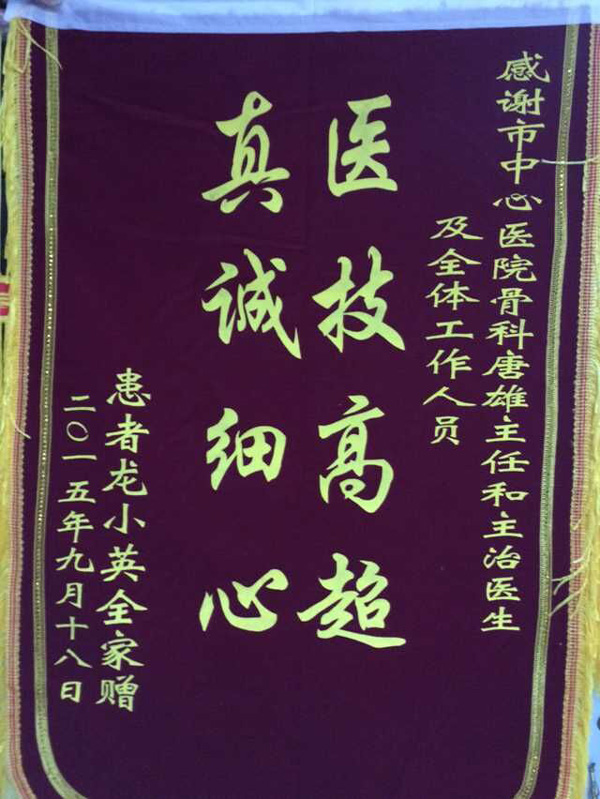 感谢市中心医院骨科唐雄主任和主治医生
及全体工作人员
医技高超
真诚细心
患者龙小英全家赠
二〇一五年九月十八日